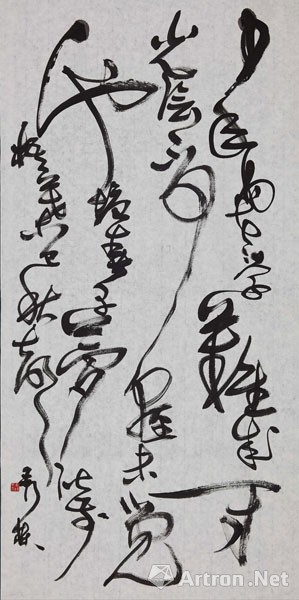 少年易老学難成一寸
光陰不可輕未觉
池塘春草夢阶前
梧葉已秋声
Artron.Net